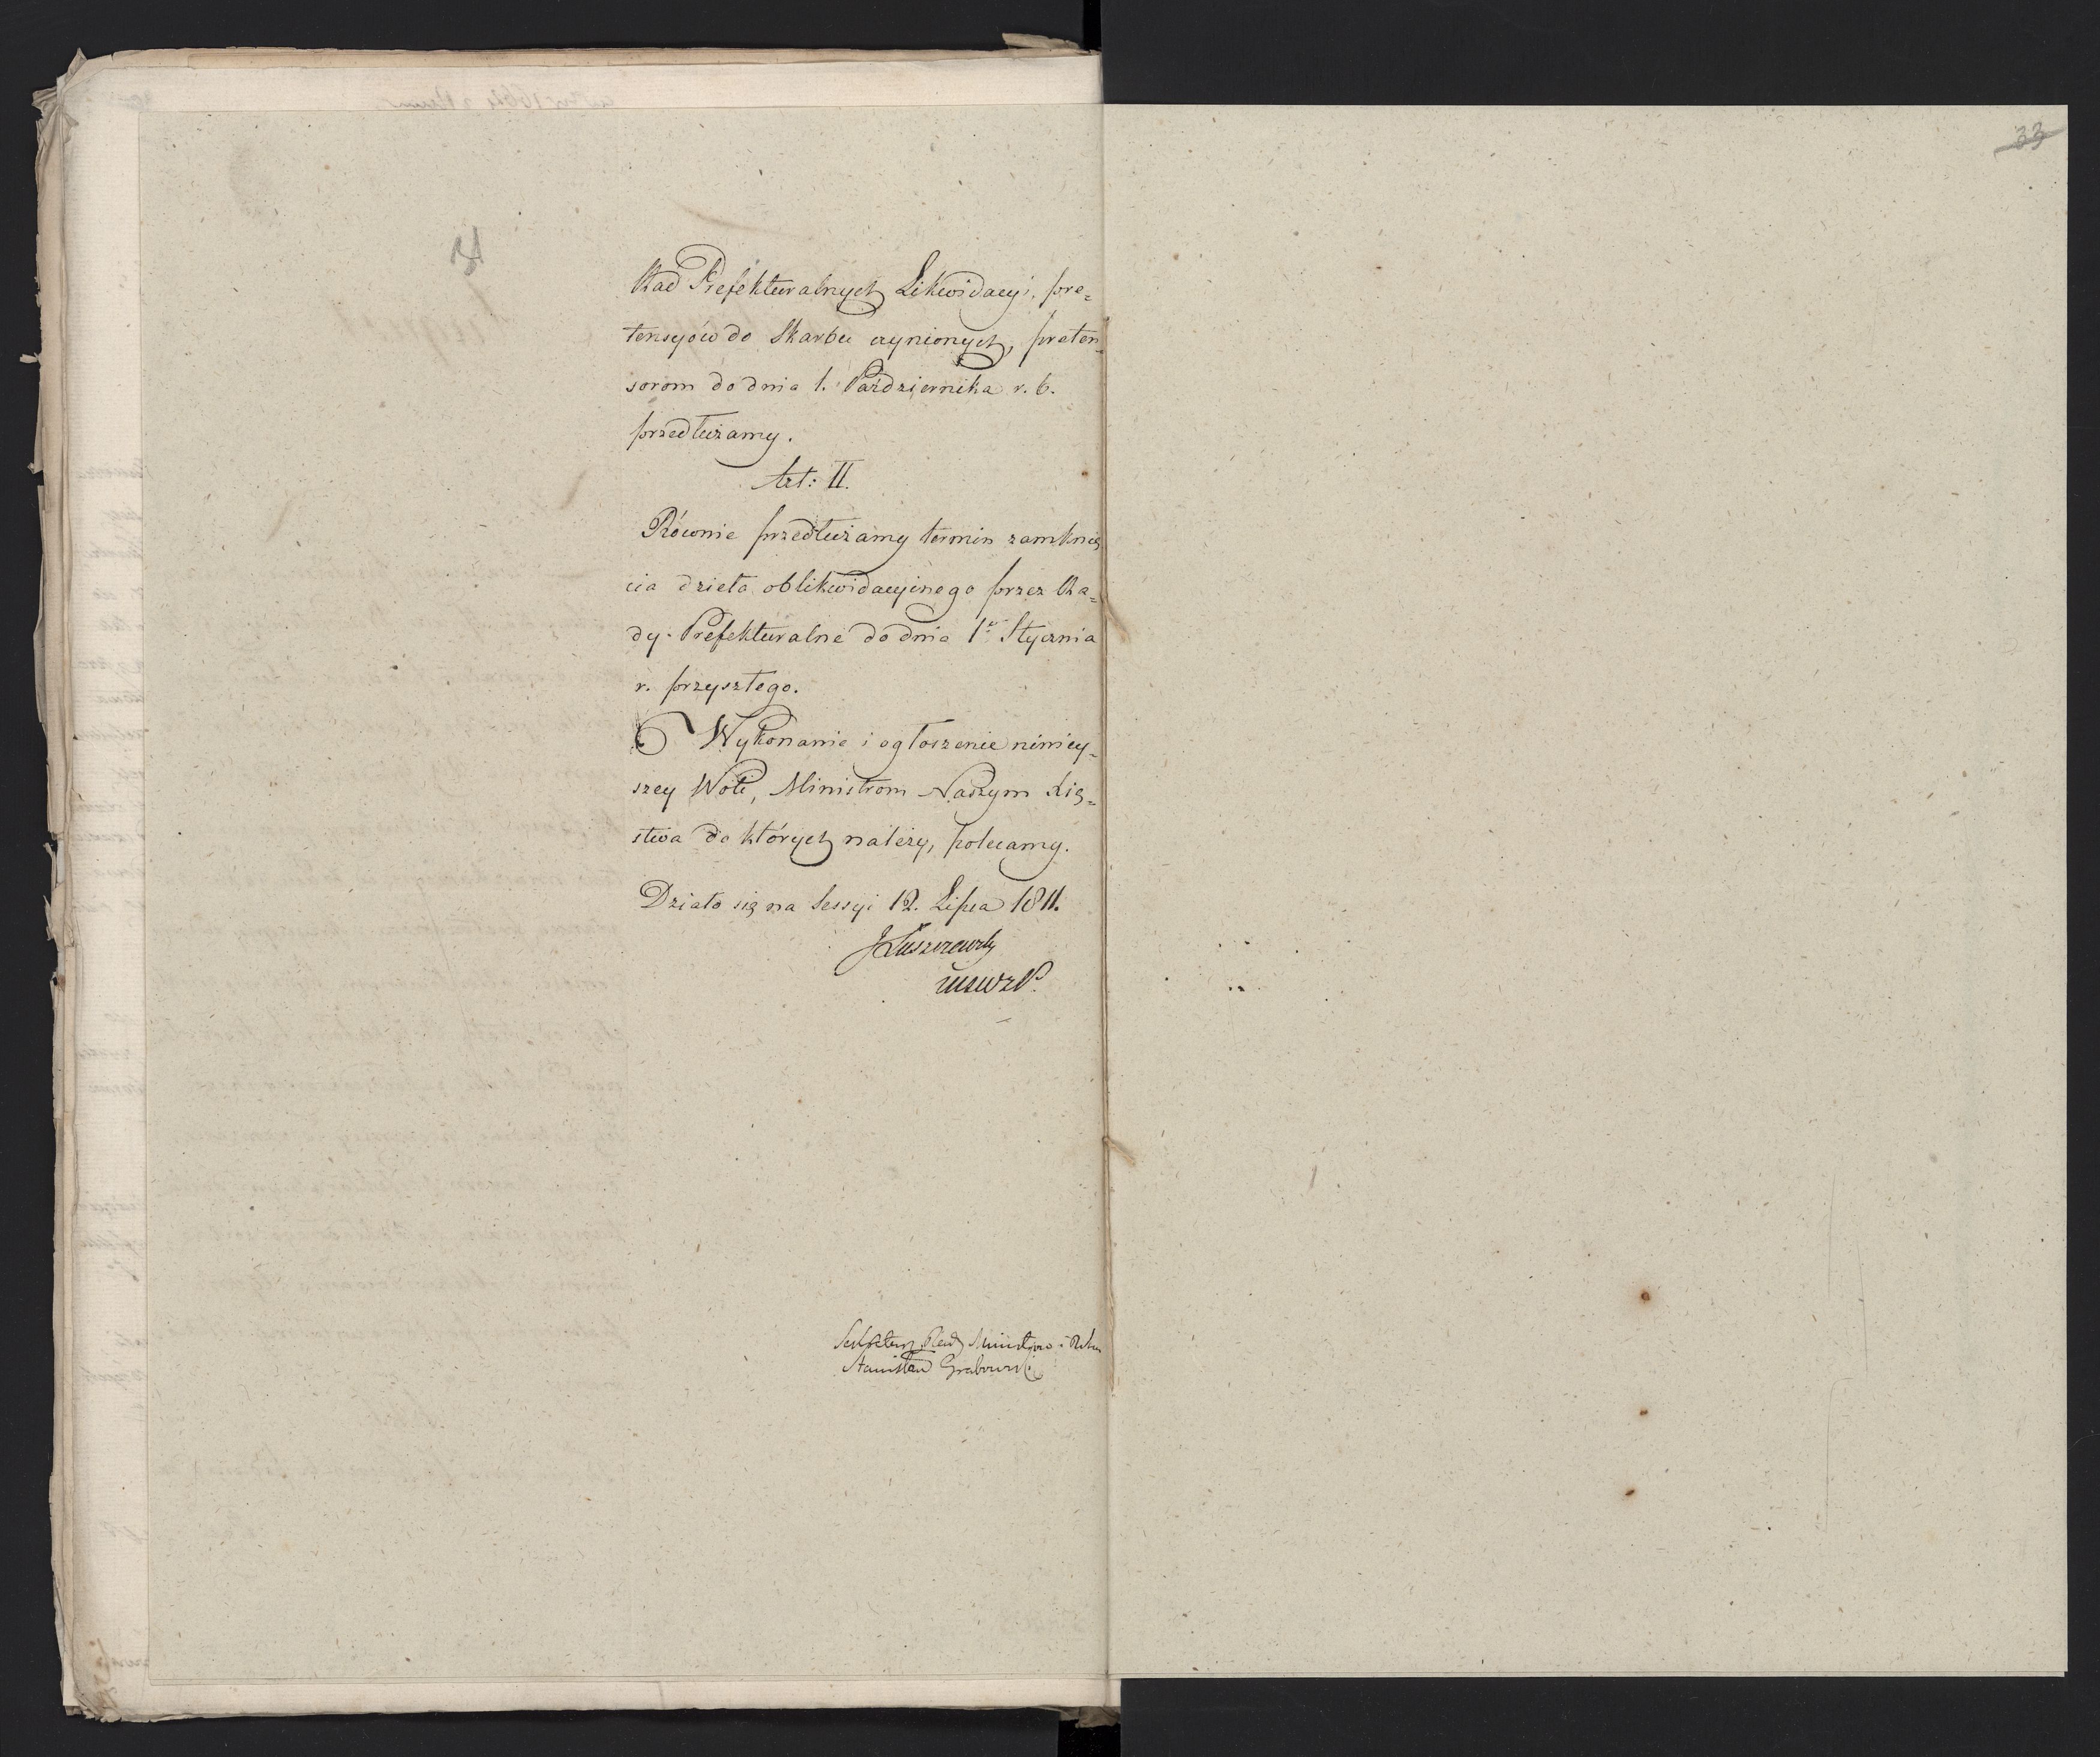 Rad Prefekturalnych Likwidacyi, pre=
tensyów do Skarbu czynionych, preten=
sorom do dnia 1. Października r. b.
przedłużamy.
Art: II.
Równie przedłużamy termin zamknię
cia dzieła oblikwidacyinego przez Ra=
dy Prefekturalne do dnia 1º Stycznia
r. przyszłego.
Wykonanie i ogłoszenie niniey=
szey Woli, Ministrom Naszym Xię=
stwa do których należy, polecamy.
Działo się na Sessyi 12. Lipca 1811.
JŁuszczewsky
Sekretarz Rady Ministrów
Stanisław Grabowski
33